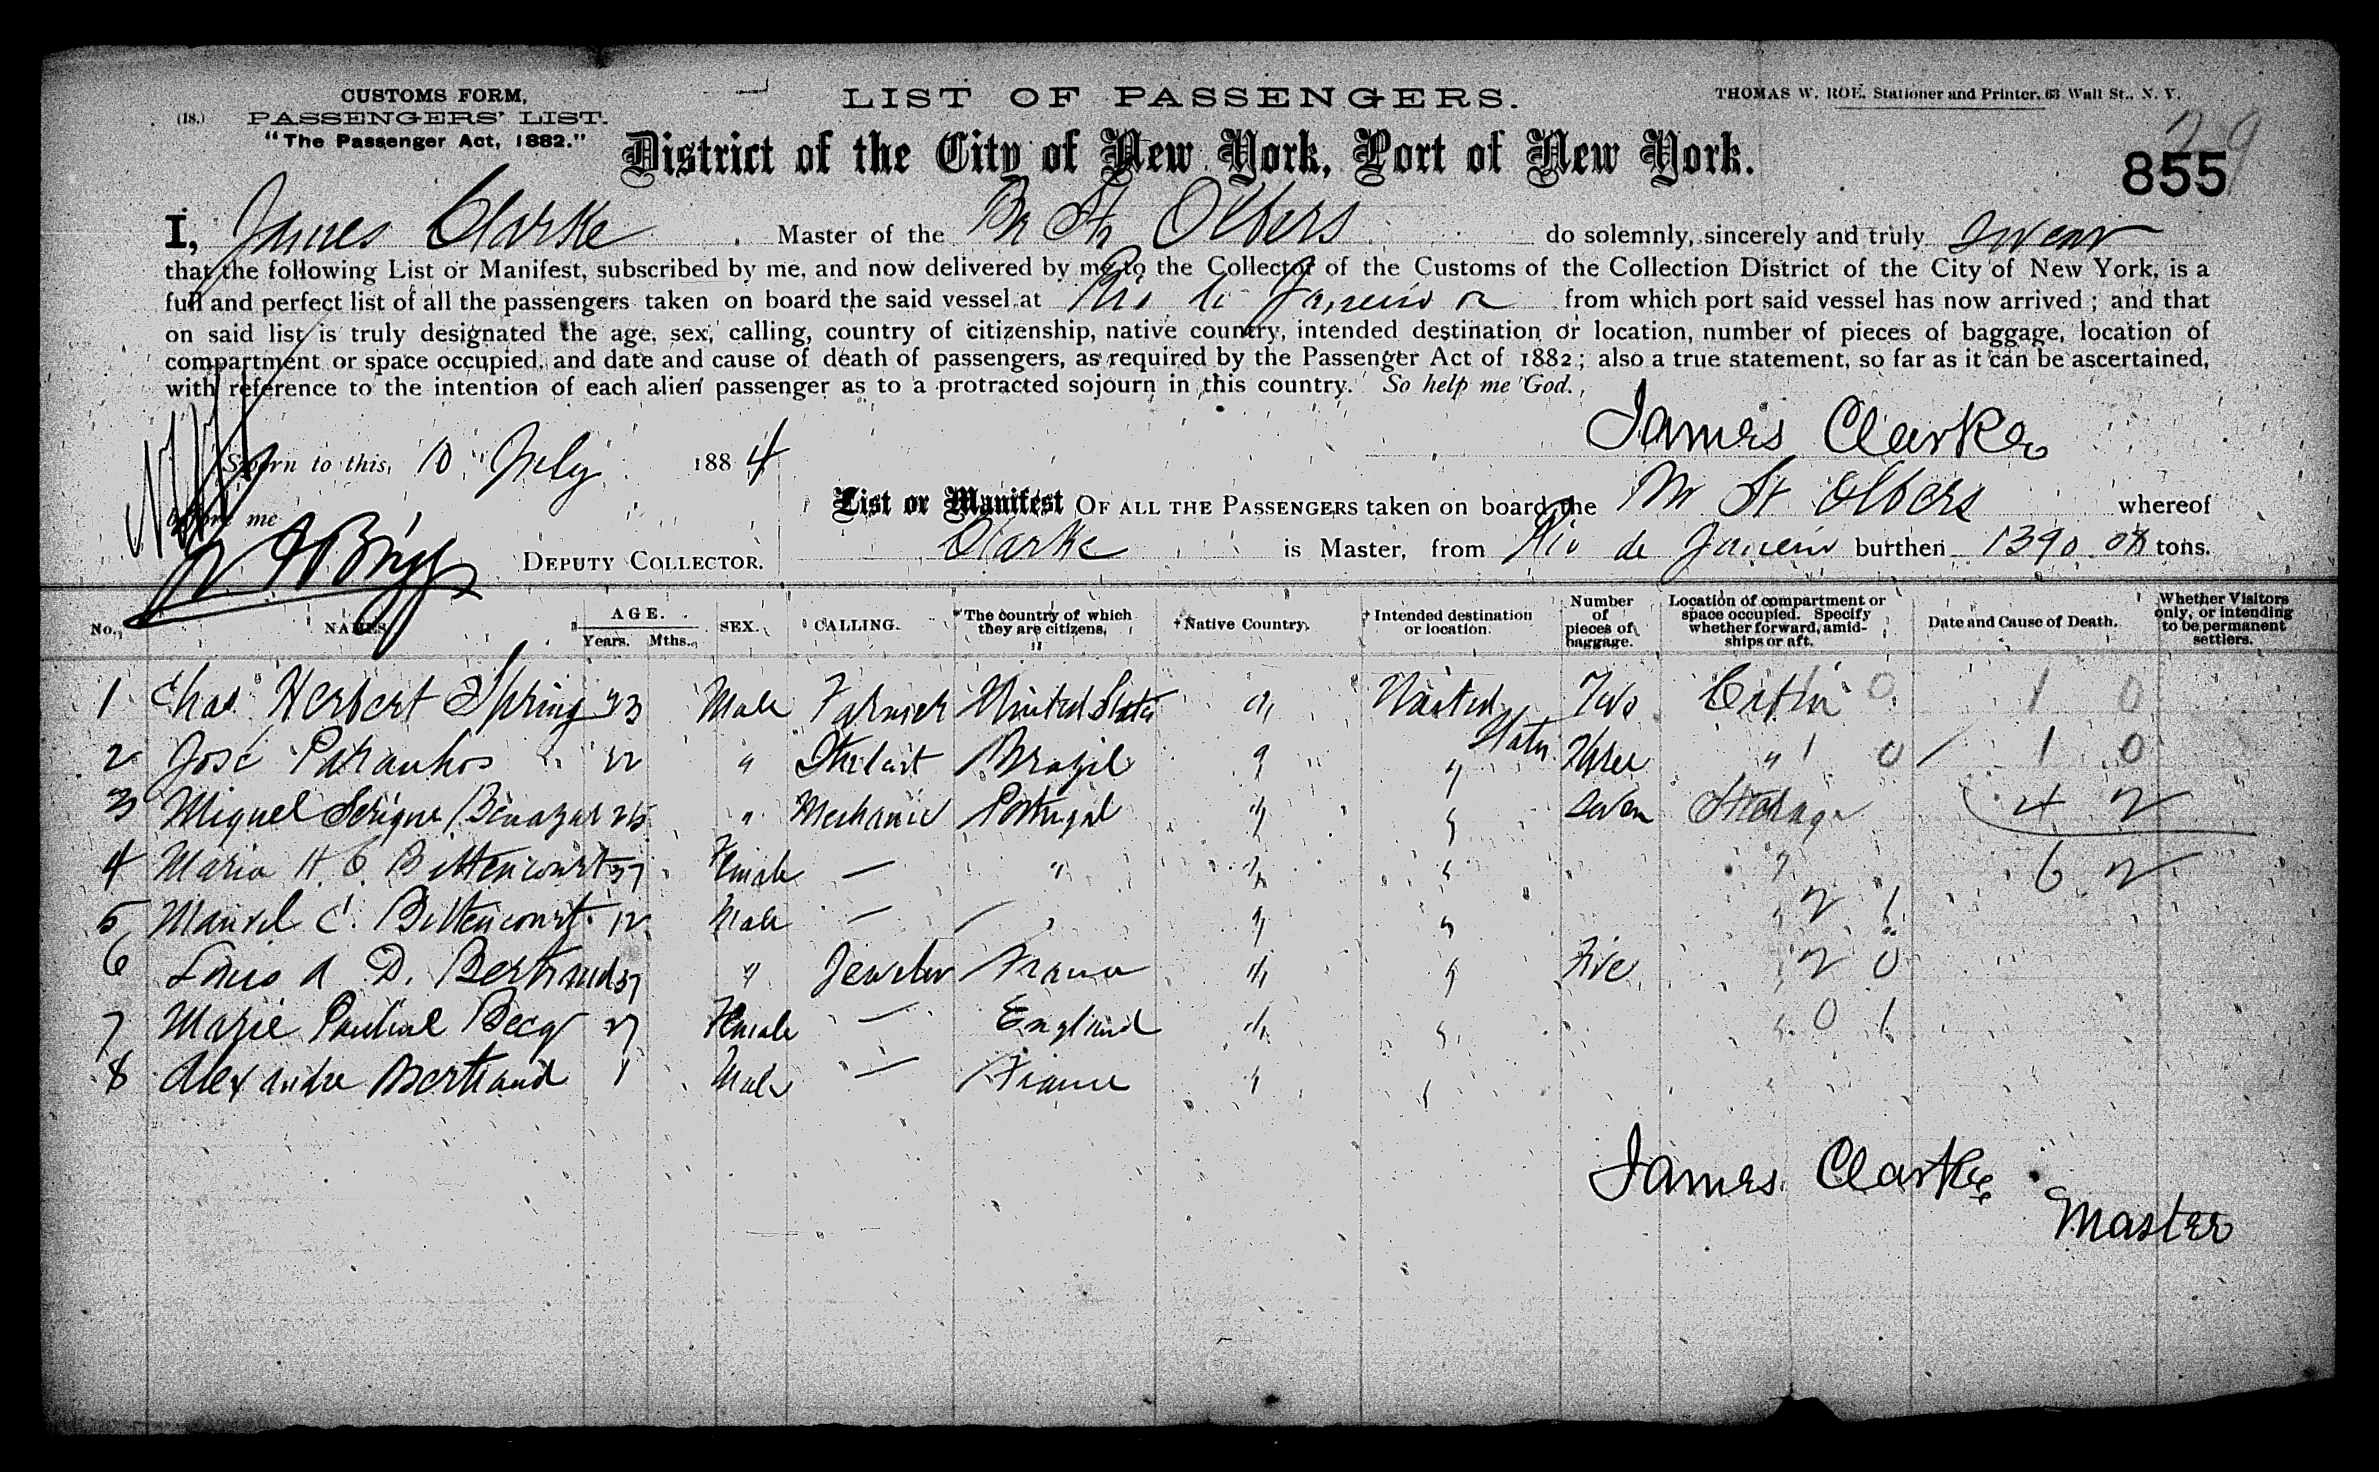 CUSTOMS FORM,
(18.) PASSENGERS' LIST.
"The Passenger Act, 1882."
LIST OF PASSENGERS.
THOMAS W. ROE, Stationer and Printer, 63 Wall St., N. Y.
District of the City of New York, Port of New York.
29
855
I, James Clarke Master of the Br Str Olbers do solemnly, sincerely and truly swear
that the following List or Manifest, subscribed by me, and now delivered by me to the Collector of the Customs of the Collection District of the City of New York, is a
full and perfect list of all the passengers taken on board the said vessel at Rio de Janeiro from which port said vessel has now arrived ; and that
on said list is truly designated the age, sex, calling, country of citizenship, native country, intended destination or location, number of pieces of baggage, location of
compartment or space occupied, and date and cause of death of passengers, as required by the Passenger Act of 1882 ; also a true statement, so far as it can be ascertained,
with reference to the intention of each alien passenger as to a protracted sojourn in this country. So help me God.
James Clarke
Sworn to this, 10 July 1884
before me
DEPUTY COLLECTOR.
List or Manifest OF ALL THE PASSENGERS taken on board the St Olbers whereof
Clarke is Master, from Rio de Janeiro burthen 1390 08 tons.
No. NAMES. AGE. Years. Mths. SEX. CALLING. The country of which they are citizens. Native Country. Intended destination or location. Number of pieces of baggage. Location of compartment or space occupied. Specify whether forward, amidships or aft. Date and Cause of Death. Whether Visitors only, or intending to be permanent settlers.
1 Chas Herbert Spring 23 Male Farmer United States " United States Two Cabin 0 1 0
2 José Paranhos 22 " Brazil " " Three " 1 0 1 0
3 Miguel 25 " Mechanic Portugal " " Seven Steerage 4 2
4 Maria H. C. Bittencourt 37 Female — " " " " 6 2
5 Manuel C. Bittencourt 12 Male — " " " " 2 1
6 Louis A D. Bertrand 37 " Jeweler France " " Five " 2 0
7 Marie Becq 27 Female — England " " " 0 1
8 Alexandre Bertrand 1 Male — France " " "
James Clarke
Master